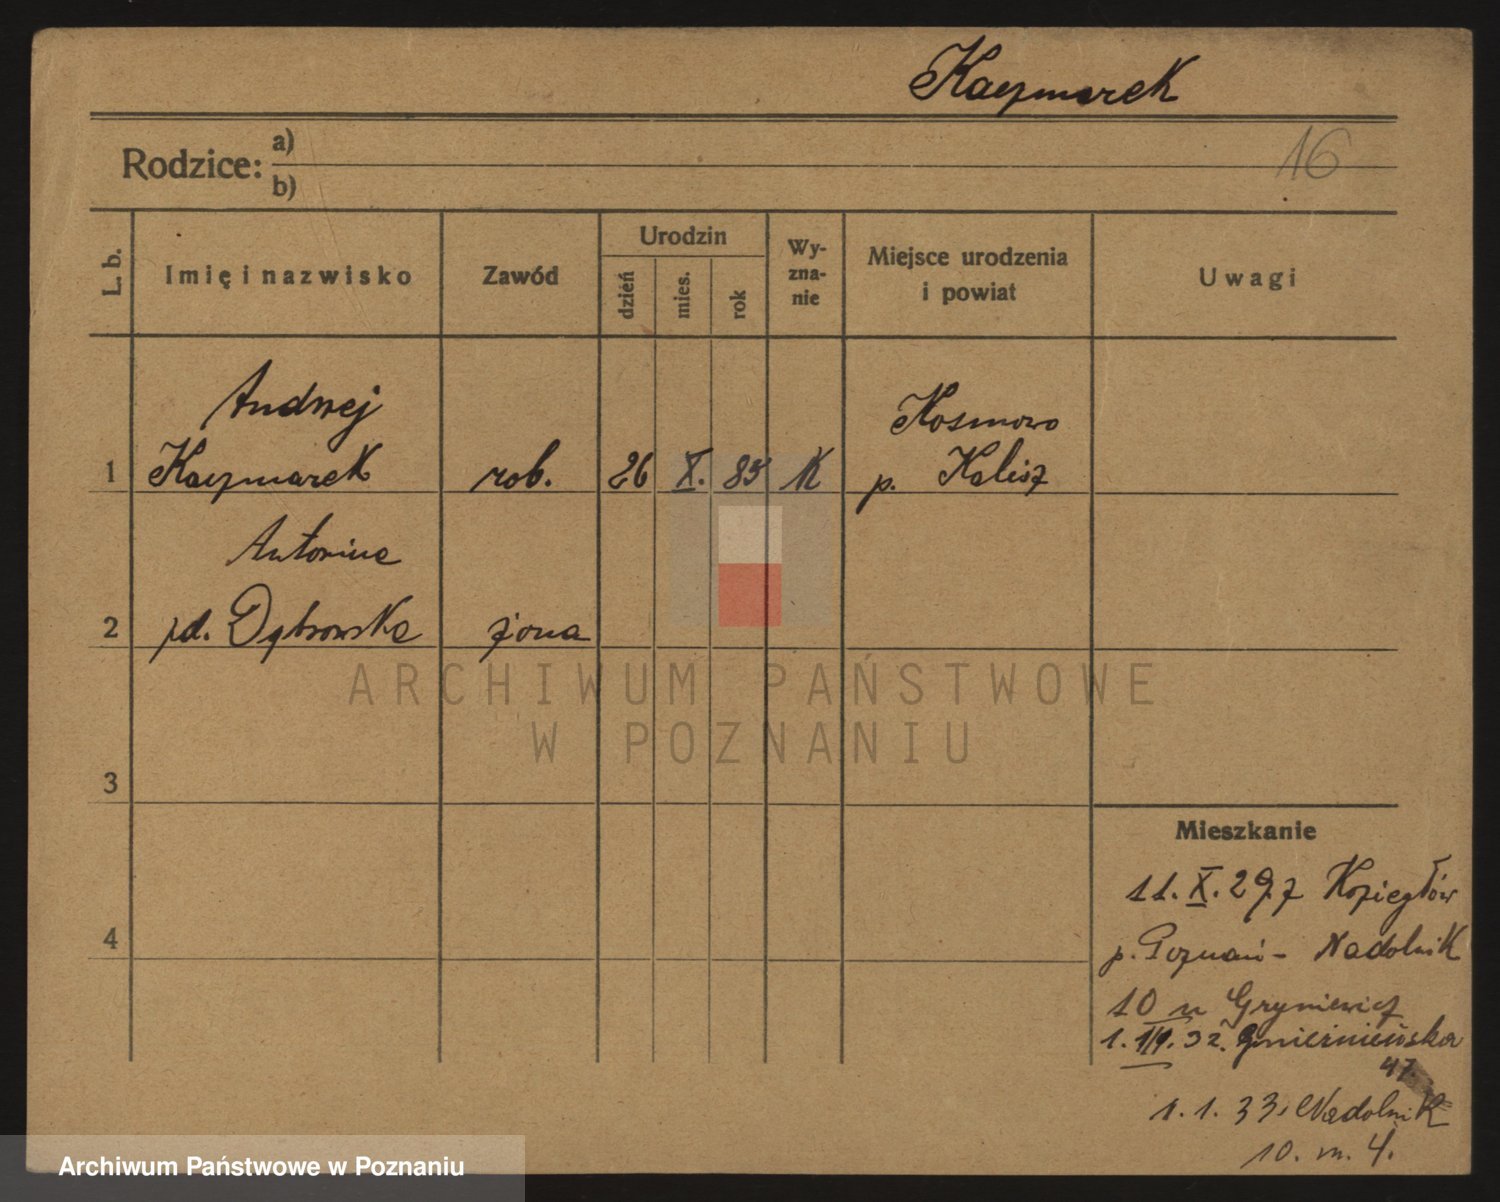 Kaczmarek
16
Rodzice: a)
b)
L. b.
Imię i nazwisko
Zawód
Urodzin
dzień
mies.
rok
Wy-
zna-
nie
Miejsce urodzenia
i powiat
Uwagi
Andrzej
Kosmowo
1 Kaczmarek rob. 26 X. 85 K p. Kalisz
Antonina
2 Dąbrowska żona
ARCHIWUM PAŃSTWOWE
W POZNANIU
3
Mieszkanie
11. X. 29. z Koziegłów
4
p. Poznań - Nadolnik
10 u Gryniewicz
1. 32. Gnieźnieńska
47.
1. 1. 33. Nadolnik
10. m. 4.
Archiwum Państwowe w Poznaniu